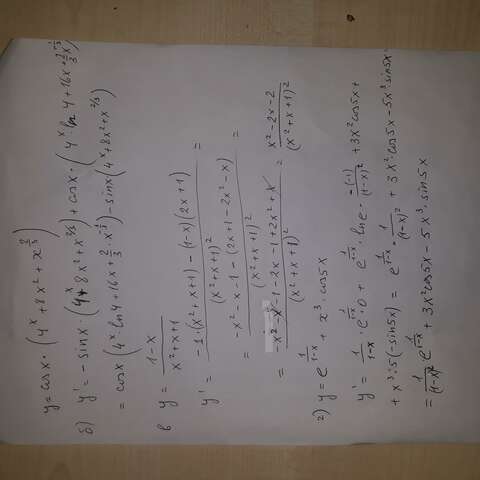 y = cosx · (4^x + 8x² + x^(2/3))
б) y' = -sinx · (4^x + 8x² + x^(2/3)) + cosx · (4^x · ln 4 + 16x + 2/3 x^(-1/3))
= cosx (4^x · ln 4 + 16x + 2/3 · x^(-1/3)) - sinx (4^x + 8x² + x^(2/3))
в y = (1-x)/(x²+x+1)
y' = (-1·(x²+x+1) - (1-x)(2x+1))/(x²+x+1)² =
= (-x²-x-1-(2x+1-2x²-x))/(x²+x+1)² =
= (-x²-x-1-2x-1+2x²+x)/(x²+x+1)² = (x²-2x-2)/(x²+x+1)²
г) y = e^(1/(1-x)) + x³ · cos5x
y' = 1/(1-x) · e · 0 + e^(1/(1-x)) · ln e · -(-1)/(1-x)² + 3x² cos5x +
+ x³ · 5(-sin5x) = e^(1/(1-x)) · 1/(1-x)² + 3x² · cos5x - 5x³ sin5x =
= 1/(1-x)² e^(1/(1-x)) + 3x² cos5x - 5x³ · sin5x